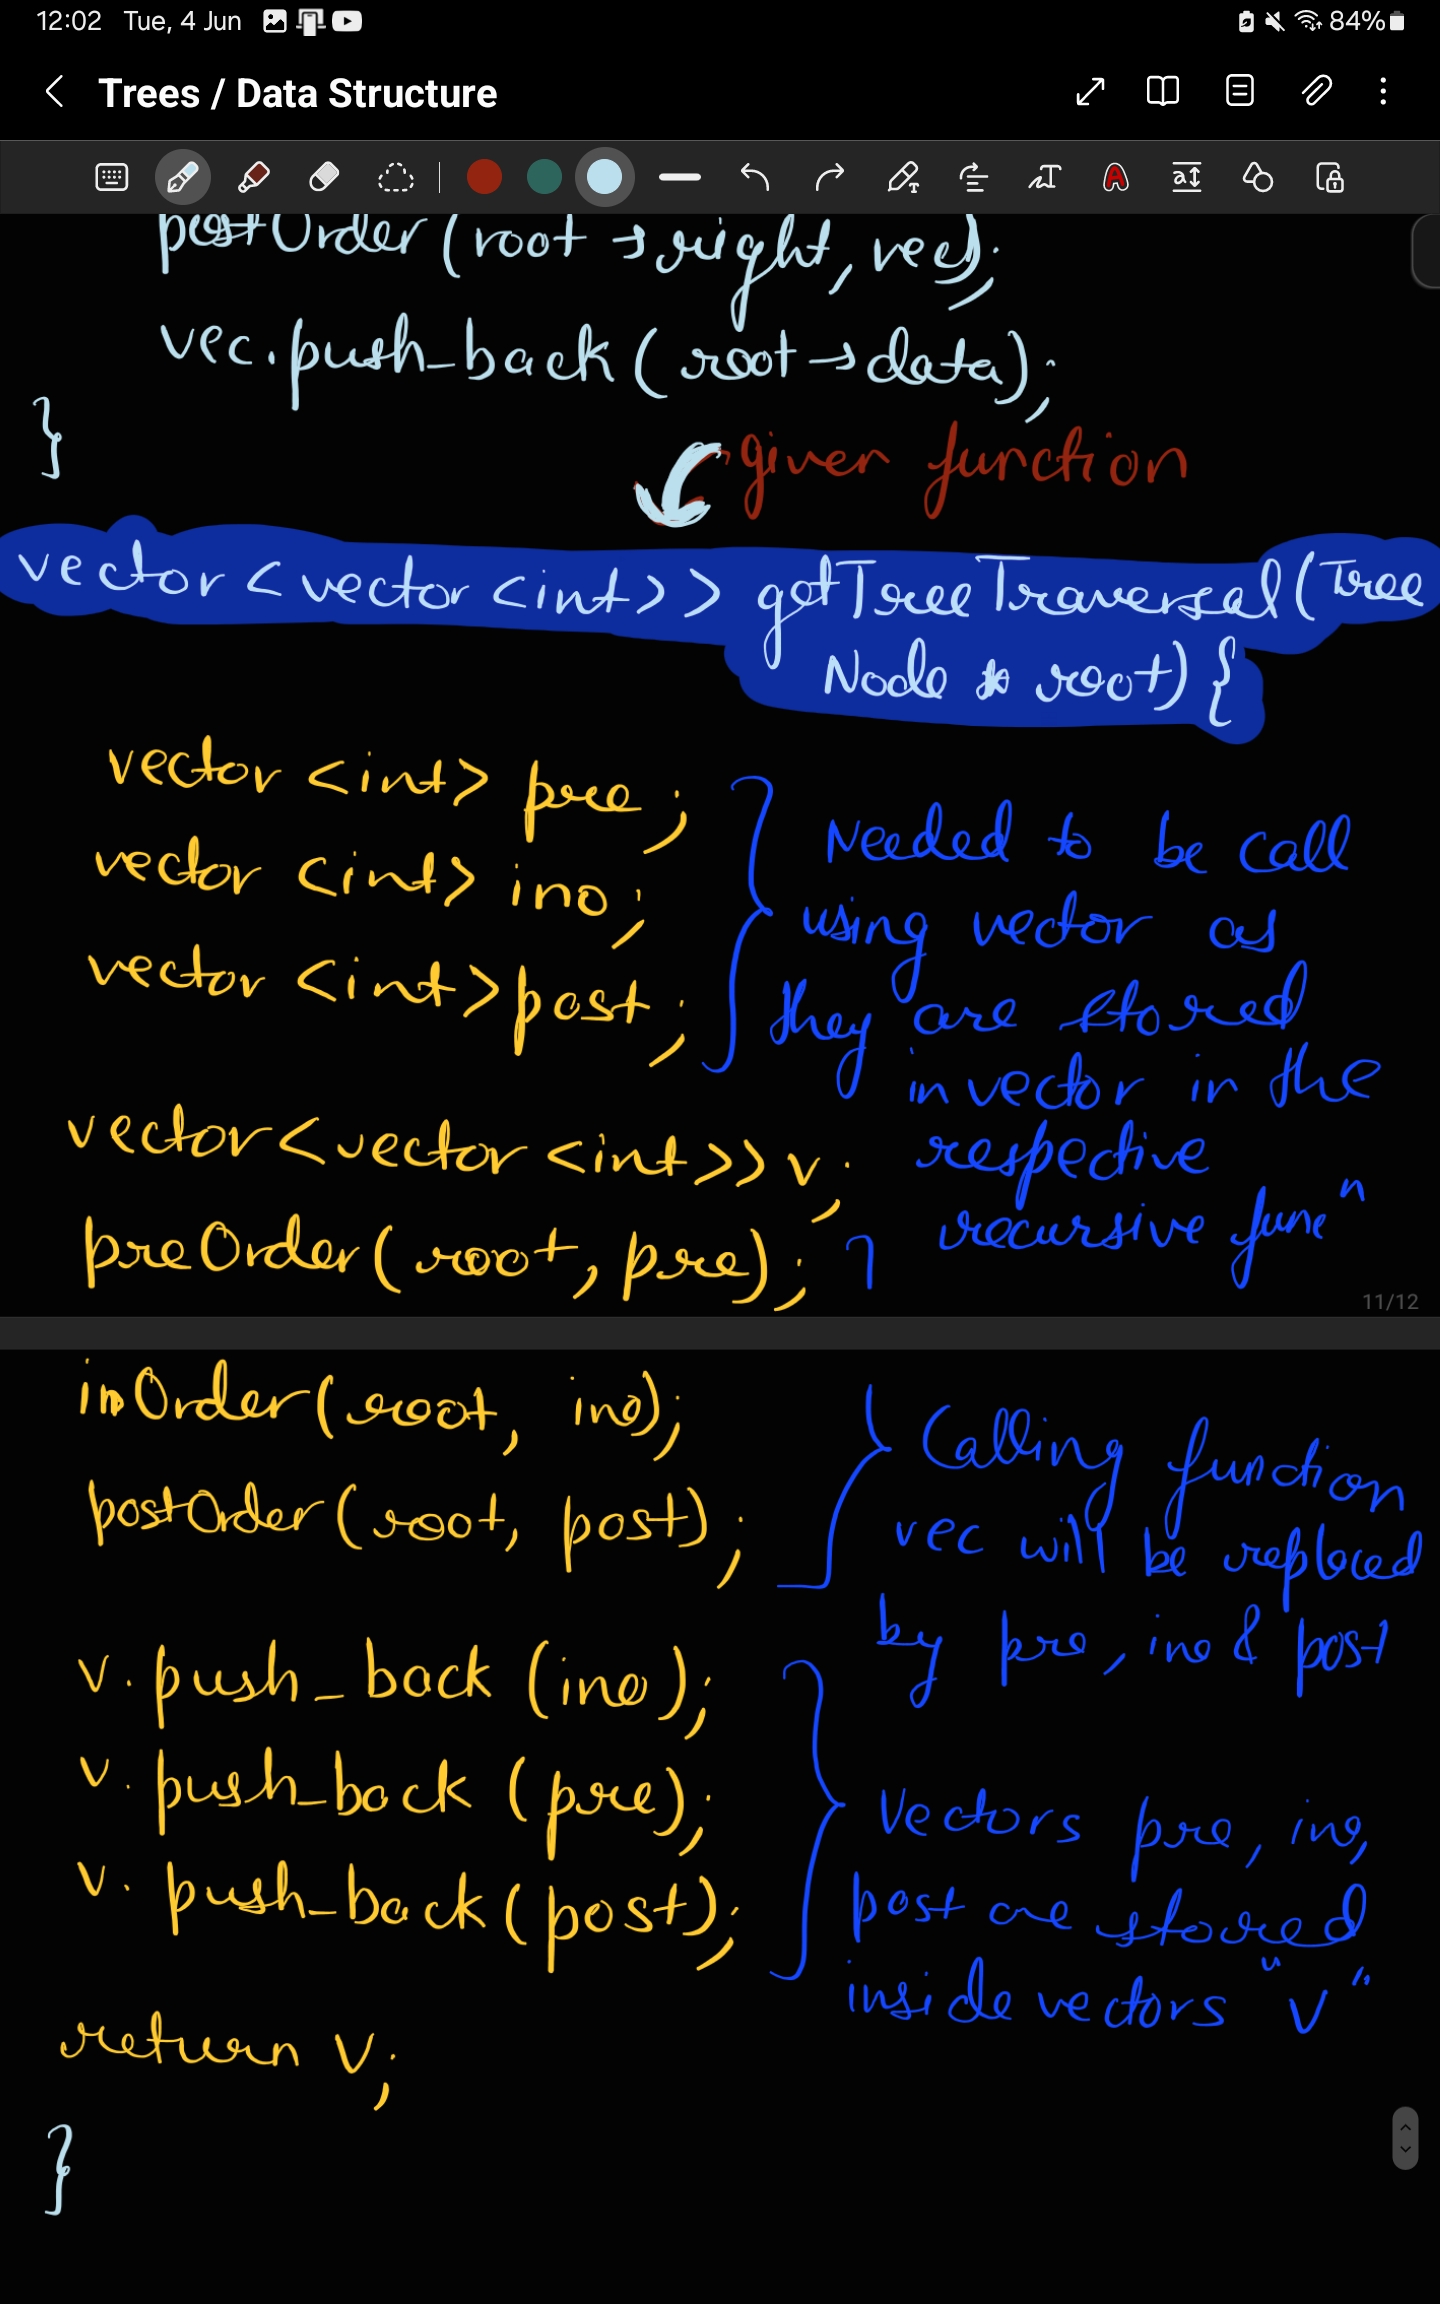 12:02 Tue, 4 Jun 84%
Trees / Data Structure
postOrder (root → right, vec);
vec.push_back (root → data);
}
given function
vector < vector <int>> getTreeTraversal (Tree
Node * root) {
vector <int> pre ;
vector <int> ino ;
vector <int> post ;
Needed to be call
using vector as
they are stored
in vector in the
respective
recursive funcⁿ
vector < vector <int>> v ;
preOrder (root, pre) ;
11/12
inOrder (root, ino);
postOrder (root, post) ;
Calling function
vec will be replaced
by pre, ino & post
v. push_back (ino);
v. push_back (pre);
v. push_back (post);
Vectors pre, ino,
post are stored
inside vectors "v"
return v;
}